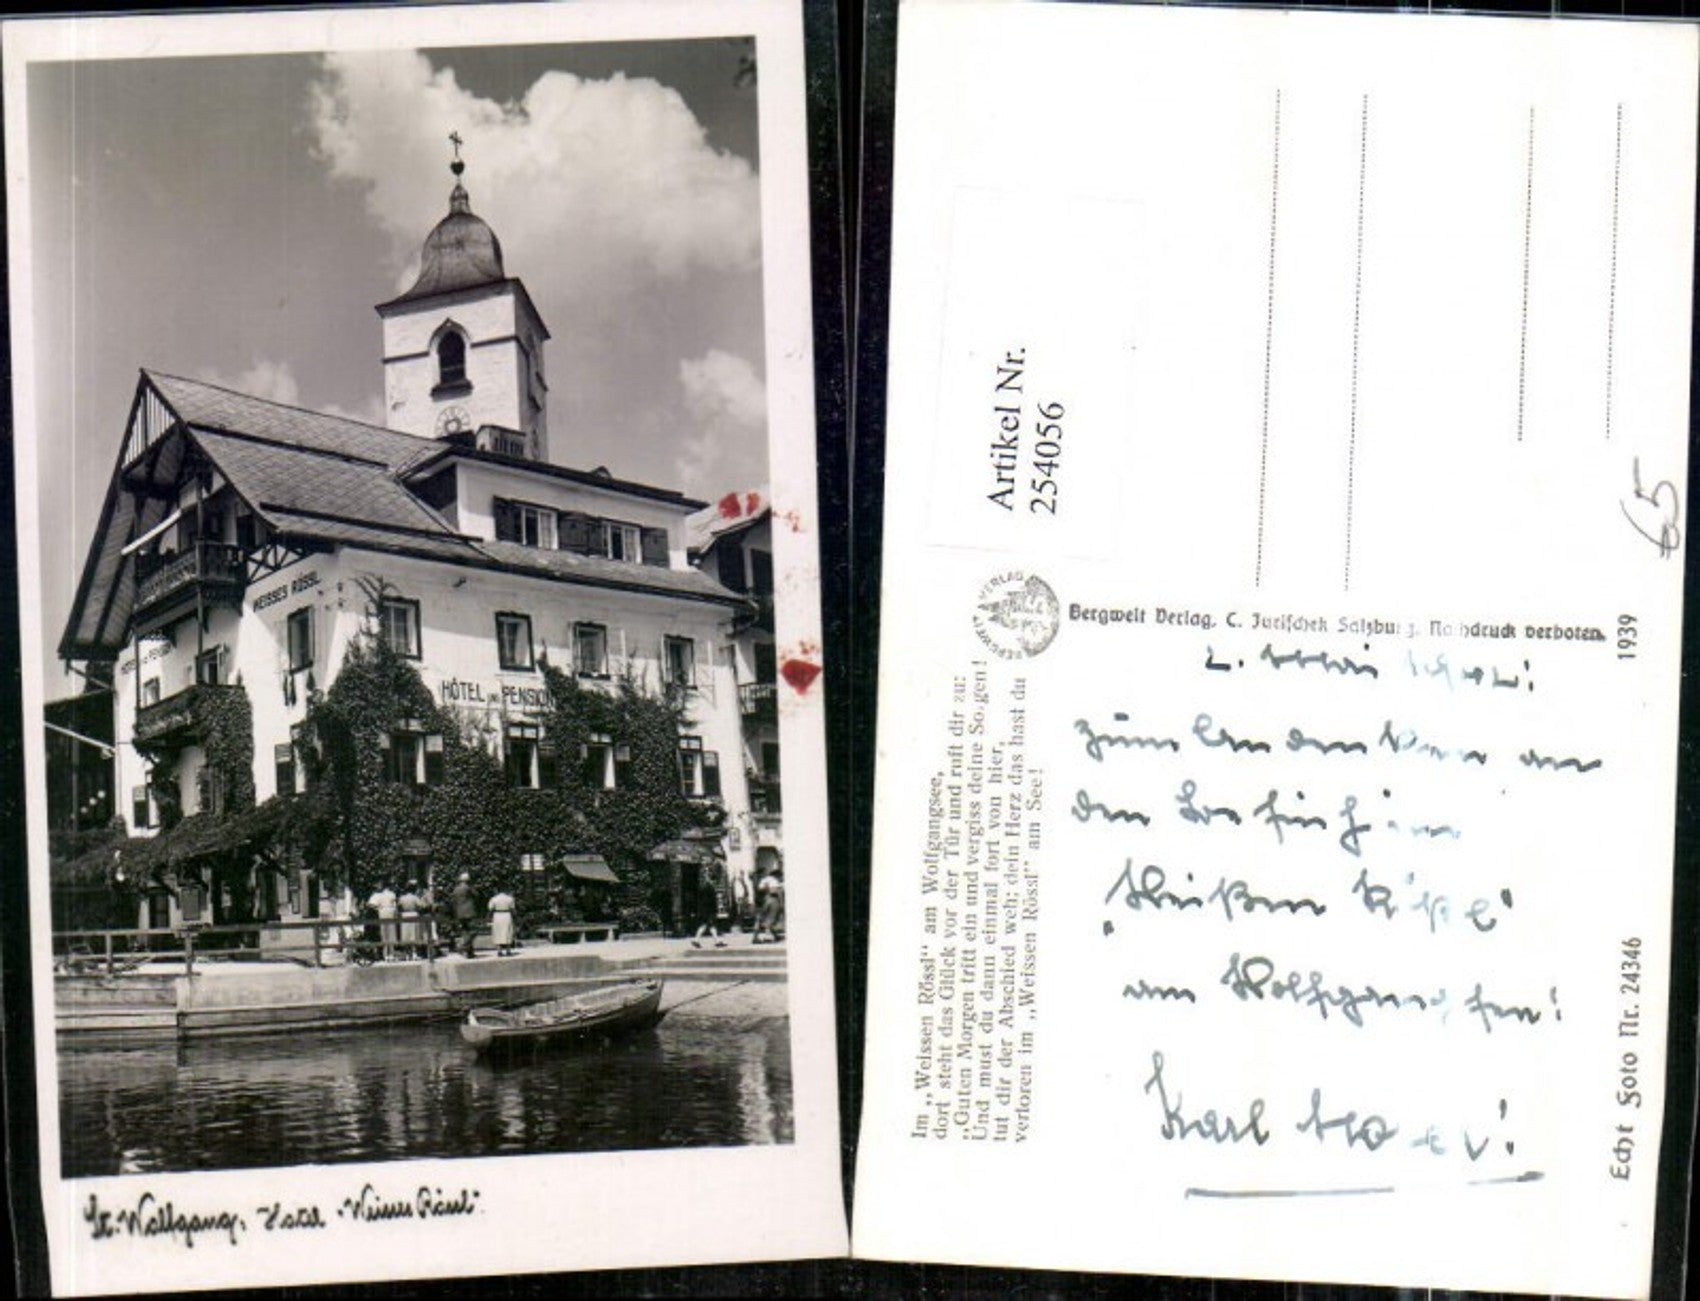 WEISSES RÖSSL
HOTEL PENSION
HÔTEL UND PENSION
St. Wolfgang, Hotel „Weisses Rössl“
Artikel Nr.
254056
65
BERGWELT VERLAG
Bergwelt Verlag, C. Jurischek Salzburg. Nachdruck verboten.
1939
Im „Weissen Rössl“ am Wolfgangsee,
dort steht das Glück vor der Tür und ruft dir zu:
„Guten Morgen tritt ein und vergiss deine Sorgen!
Und must du dann einmal fort von hier,
tut dir der Abschied weh; dein Herz das hast du
verloren im „Weissen Rössl“ am See!
Zum Andenken an
den Besuch im
„Weißen Rößl“
am Wolfgangsee!
Karl
Echt Foto Nr. 24346